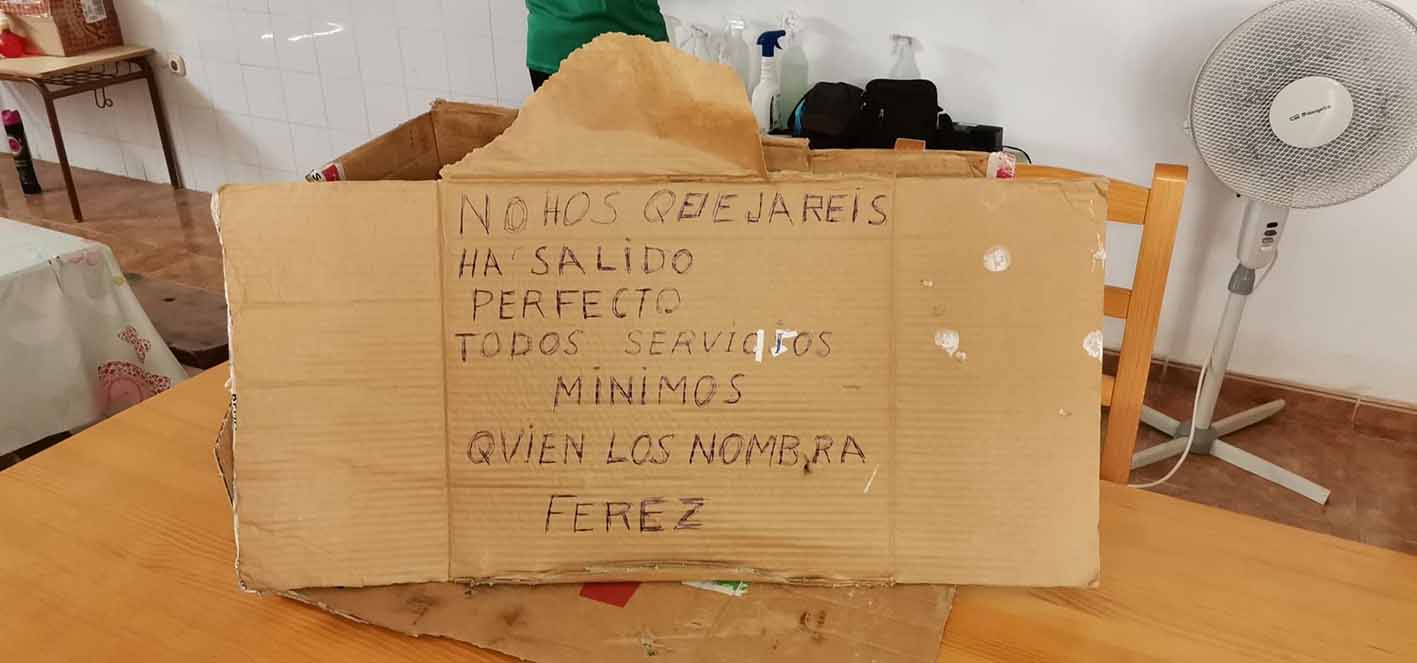 NO HOS QUEJAREIS
HA SALIDO
PERFECTO
TODOS SERVICIOS
MINIMOS
QVIEN LOS NOMBRA
FEREZ
Orbegozo